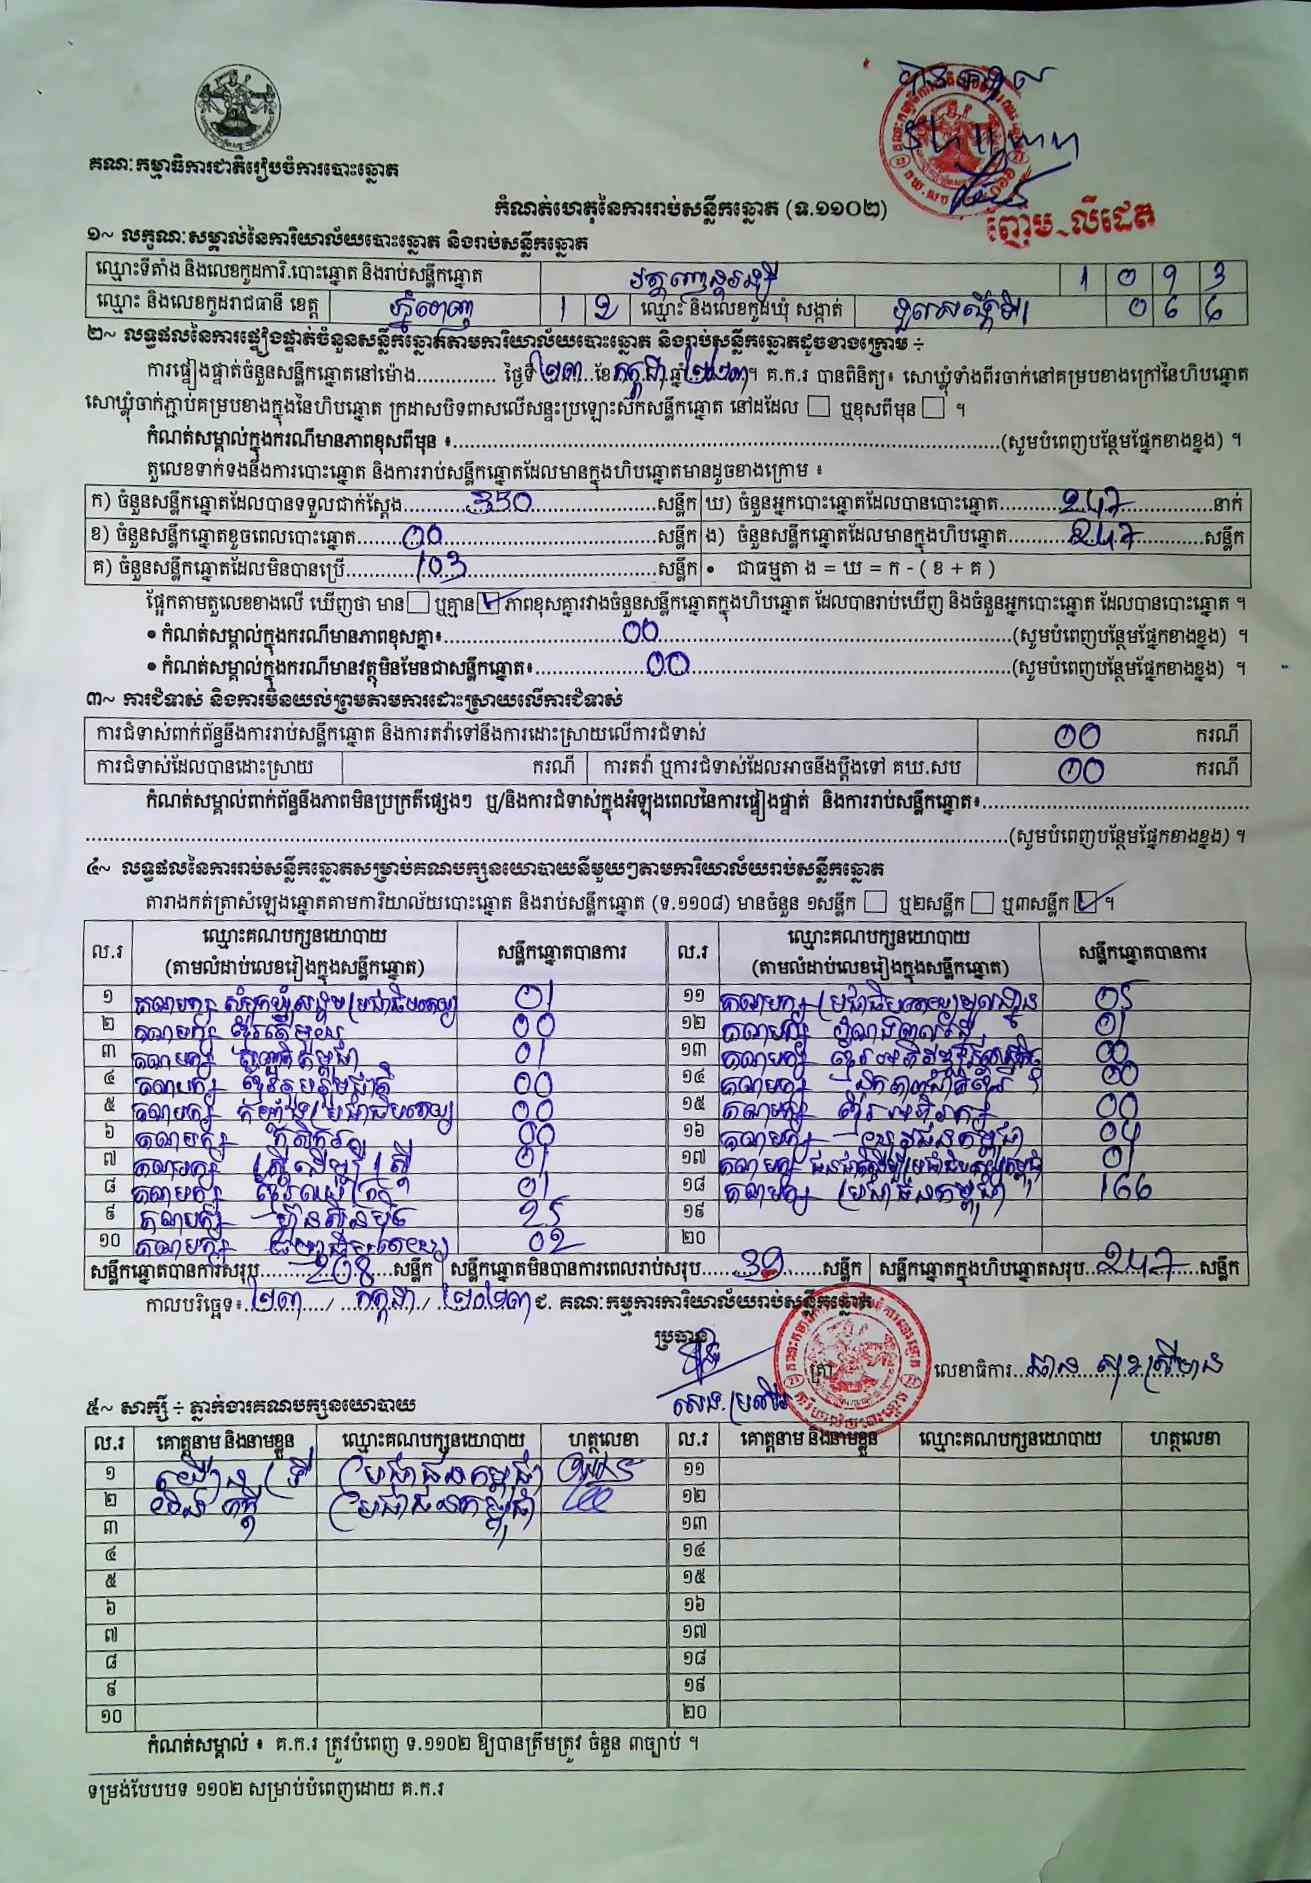 គណៈកម្មាធិការជាតិរៀបចំការបោះឆ្នោត
កំណត់ហេតុនៃការរាប់សន្លឹកឆ្នោត (ទ.១១០២)
ញ៉ែម លីដេត
១~ លក្ខណៈសម្គាល់នៃការិយាល័យបោះឆ្នោត និងរាប់សន្លឹកឆ្នោត
ឈ្មោះទីតាំង និងលេខកូដការិ.បោះឆ្នោត និងរាប់សន្លឹកឆ្នោត 1 0 9 3
ឈ្មោះ និងលេខកូដរាជធានី ខេត្ត ភ្នំពេញ 1 2 ឈ្មោះ និងលេខកូដឃុំ សង្កាត់ 0 6 6
២~ លទ្ធផលនៃការផ្ទៀងផ្ទាត់ចំនួនសន្លឹកឆ្នោតតាមការិយាល័យបោះឆ្នោត និងរាប់សន្លឹកឆ្នោតដូចខាងក្រោម ÷
ការផ្ទៀងផ្ទាត់ចំនួនសន្លឹកឆ្នោតនៅម៉ោង............. ថ្ងៃទី ២៣ ខែ កក្កដា ឆ្នាំ ២០២៣។ គ.ក.រ បានពិនិត្យ៖ សោឃ្លុំទាំងពីរចាក់នៅគម្របខាងក្រៅនៃហិបឆ្នោត
សោឃ្លុំចាក់ភ្ជាប់គម្របខាងក្នុងនៃហិបឆ្នោត ក្រដាសបិទពាសលើសន្ទះប្រឡោះស៊កសន្លឹកឆ្នោត នៅដដែល ☐ ឬខុសពីមុន ☐ ។
កំណត់សម្គាល់ក្នុងករណីមានភាពខុសពីមុន ៖..............(សូមបំពេញបន្ថែមផ្នែកខាងខ្នង) ។
តួលេខទាក់ទងនឹងការបោះឆ្នោត និងការរាប់សន្លឹកឆ្នោតដែលមានក្នុងហិបឆ្នោតមានដូចខាងក្រោម ៖
ក) ចំនួនសន្លឹកឆ្នោតដែលបានទទួលជាក់ស្តែង......350......សន្លឹក ឃ) ចំនួនអ្នកបោះឆ្នោតដែលបានបោះឆ្នោត......247......នាក់
ខ) ចំនួនសន្លឹកឆ្នោតខូចពេលបោះឆ្នោត......00......សន្លឹក ង) ចំនួនសន្លឹកឆ្នោតដែលមានក្នុងហិបឆ្នោត......247......សន្លឹក
គ) ចំនួនសន្លឹកឆ្នោតដែលមិនបានប្រើ......103......សន្លឹក • ជាធម្មតា ង = ឃ = ក - ( ខ + គ )
ផ្អែកតាមតួលេខខាងលើ ឃើញថា មាន ☐ ឬគ្មាន ☑ ភាពខុសគ្នារវាងចំនួនសន្លឹកឆ្នោតក្នុងហិបឆ្នោត ដែលបានរាប់ឃើញ និងចំនួនអ្នកបោះឆ្នោត ដែលបានបោះឆ្នោត ។
• កំណត់សម្គាល់ក្នុងករណីមានភាពខុសគ្នា៖......00......(សូមបំពេញបន្ថែមផ្នែកខាងខ្នង) ។
• កំណត់សម្គាល់ក្នុងករណីមានវត្ថុមិនមែនជាសន្លឹកឆ្នោត៖......00......(សូមបំពេញបន្ថែមផ្នែកខាងខ្នង) ។
៣~ ការជំទាស់ និងការមិនយល់ព្រមតាមការដោះស្រាយលើការជំទាស់
ការជំទាស់ពាក់ព័ន្ធនឹងការរាប់សន្លឹកឆ្នោត និងការតវ៉ាទៅនឹងការដោះស្រាយលើការជំទាស់ 00 ករណី
ការជំទាស់ដែលបានដោះស្រាយ ករណី ការតវ៉ា ឬការជំទាស់ដែលអាចនឹងប្តឹងទៅ គឃ.សប 00 ករណី
កំណត់សម្គាល់ពាក់ព័ន្ធនឹងភាពមិនប្រក្រតីផ្សេងៗ ឬ/និងការជំទាស់ក្នុងអំឡុងពេលនៃការផ្ទៀងផ្ទាត់ និងការរាប់សន្លឹកឆ្នោត៖..............
..............(សូមបំពេញបន្ថែមផ្នែកខាងខ្នង) ។
៤~ លទ្ធផលនៃការរាប់សន្លឹកឆ្នោតសម្រាប់គណបក្សនយោបាយនីមួយៗតាមការិយាល័យរាប់សន្លឹកឆ្នោត
តារាងកត់ត្រាសំឡេងឆ្នោតតាមការិយាល័យបោះឆ្នោត និងរាប់សន្លឹកឆ្នោត (ទ.១១០៨) មានចំនួន ១សន្លឹក ☐ ឬ២សន្លឹក ☐ ឬ៣សន្លឹក ☑ ។
ល.រ ឈ្មោះគណបក្សនយោបាយ (តាមលំដាប់លេខរៀងក្នុងសន្លឹកឆ្នោត) សន្លឹកឆ្នោតបានការ ល.រ ឈ្មោះគណបក្សនយោបាយ (តាមលំដាប់លេខរៀងក្នុងសន្លឹកឆ្នោត) សន្លឹកឆ្នោតបានការ
១ គណបក្ស សំបុកឃ្មុំសង្គមប្រជាធិបតេយ្យ 01 ១១ គណបក្ស ប្រជាធិបតេយ្យមូលដ្ឋាន 05
២ គណបក្ស ខ្មែរតែមួយ 00 ១២ គណបក្ស 01
៣ គណបក្ស កម្ពុជា 01 ១៣ គណបក្ស ខ្មែរ 00
៤ គណបក្ស ខ្មែររួបរួមជាតិ 00 ១៤ គណបក្ស ឯកភាពជាតិខ្មែរ 00
៥ គណបក្ស កម្លាំងប្រជាធិបតេយ្យ 00 ១៥ គណបក្ស ខ្មែរអភិរក្ស 00
៦ គណបក្ស កសិករ 00 ១៦ គណបក្ស យុវជនកម្ពុជា 04
៧ គណបក្ស ស្ត្រីដើម្បីស្ត្រី 01 ១៧ គណបក្ស ជនជាតិដើមប្រជាធិបតេយ្យកម្ពុជា 01
៨ គណបក្ស 01 ១៨ គណបក្ស ប្រជាជនកម្ពុជា 166
៩ គណបក្ស ហ៊្វុនស៊ិនប៉ិច 25 ១៩
១០ គណបក្ស 02 ២០
សន្លឹកឆ្នោតបានការសរុប......208......សន្លឹក សន្លឹកឆ្នោតមិនបានការពេលរាប់សរុប......39......សន្លឹក សន្លឹកឆ្នោតក្នុងហិបឆ្នោតសរុប......247......សន្លឹក
កាលបរិច្ឆេទ៖ ២៣ / កក្កដា / ២០២៣ ជ. គណៈកម្មការការិយាល័យរាប់សន្លឹកឆ្នោត
ប្រធាន
ត្រា លេខាធិការ
៥~ សាក្សី ÷ ភ្នាក់ងារគណបក្សនយោបាយ
ល.រ គោត្តនាម និងនាមខ្លួន ឈ្មោះគណបក្សនយោបាយ ហត្ថលេខា ល.រ គោត្តនាម និងនាមខ្លួន ឈ្មោះគណបក្សនយោបាយ ហត្ថលេខា
១ ប្រជាជនកម្ពុជា ១១
២ ប្រជាជនកម្ពុជា ១២
៣ ១៣
៤ ១៤
៥ ១៥
៦ ១៦
៧ ១៧
៨ ១៨
៩ ១៩
១០ ២០
កំណត់សម្គាល់ ៖ គ.ក.រ ត្រូវបំពេញ ទ.១១០២ ឱ្យបានត្រឹមត្រូវ ចំនួន ៣ច្បាប់ ។
ទម្រង់បែបបទ ១១០២ សម្រាប់បំពេញដោយ គ.ក.រ